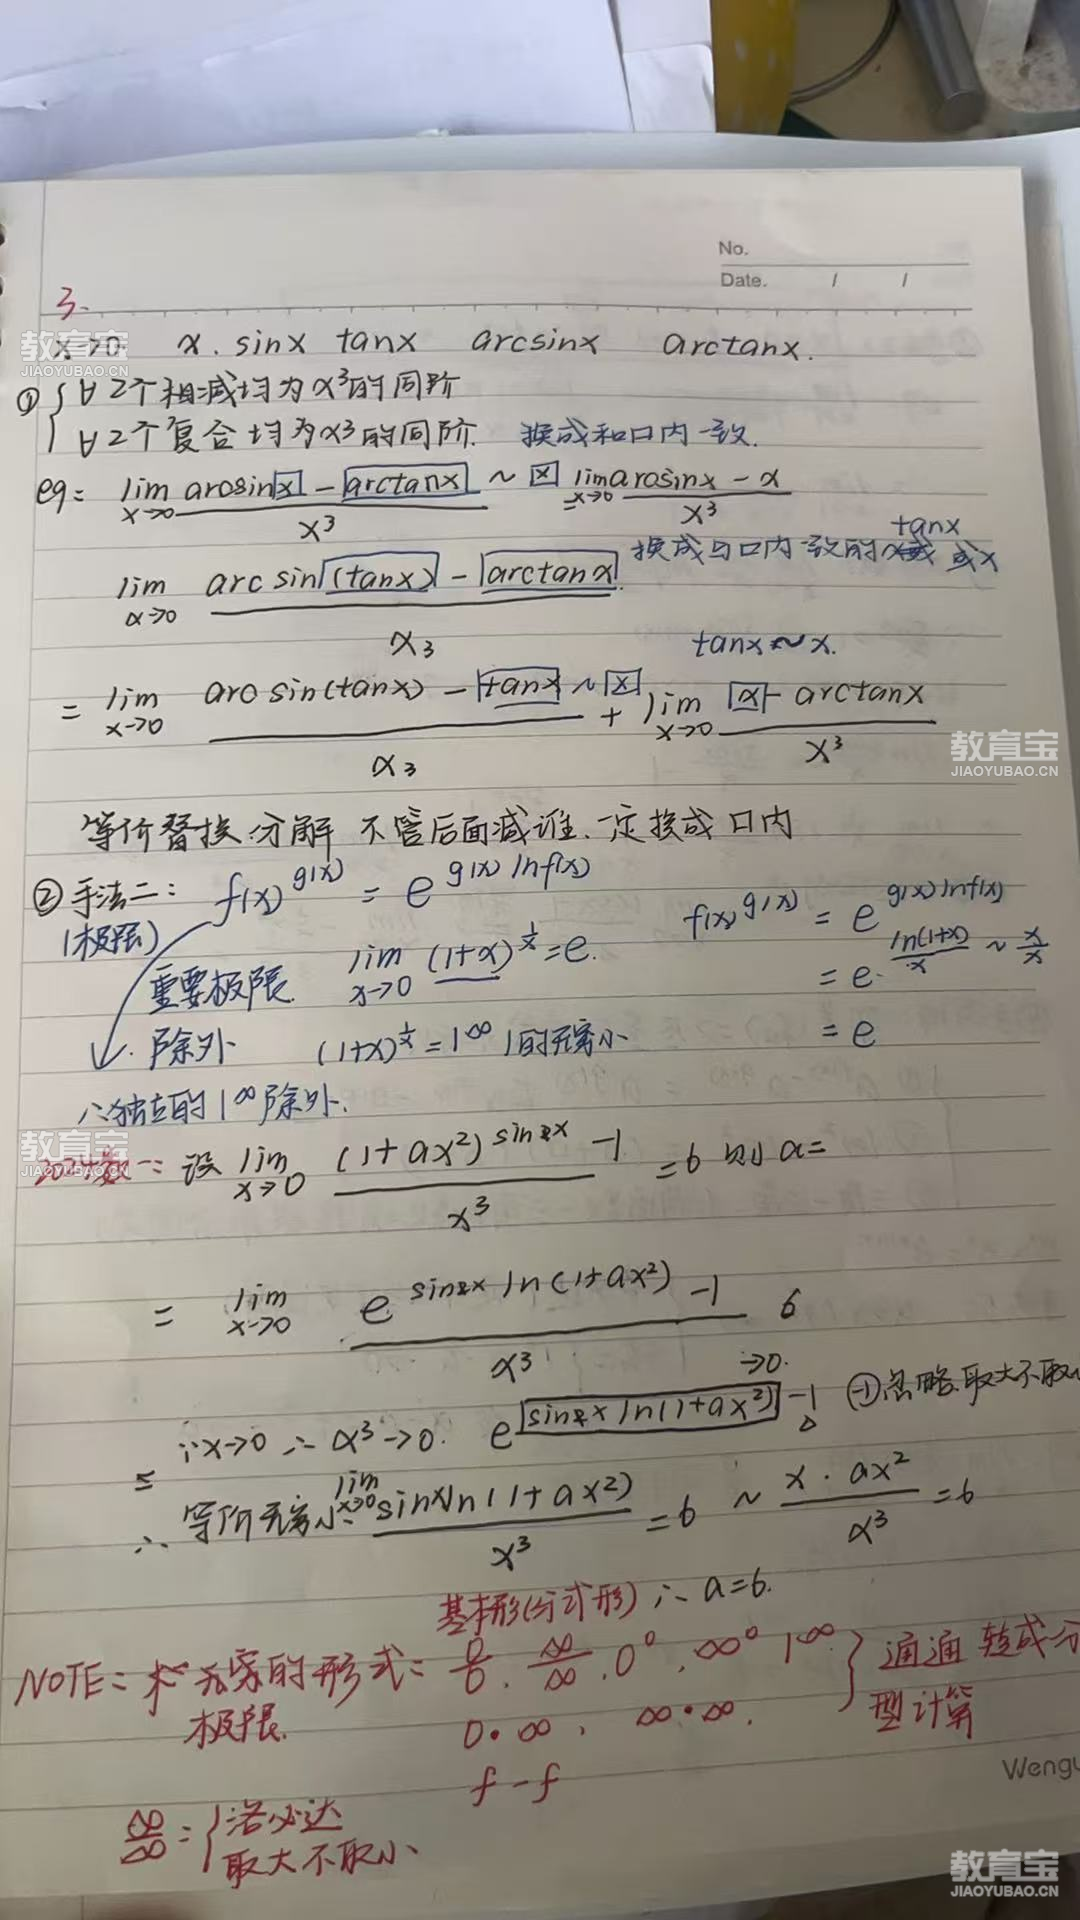 No.
Date. / /
3.
x→0 x. sinx tanx arcsinx arctanx.
① { ∀2个相减均为x³的同阶
∀2个复合均为x³的同阶. 换成和口内一致.
eg: lim x→0 (arcsin x - arctanx)/x³ ~ x = lim x→0 (arcsinx - x)/x³
tanx
换成与口内一致的 或x
lim x→0 (arcsin(tanx) - arctanx)/x3
tanx ~ x.
= lim x→0 (arcsin(tanx) - tanx ~ x)/x3 + lim x→0 (x - arctanx)/x³
等价替换分解 不管后面减谁. 一定换成口内
② 手法二: f(x)^g(x) = e^g(x) lnf(x)
(极限)
f(x)^g(x) = e^g(x) lnf(x)
重要极限. lim x→0 (1+x)^1/x = e.
= e^ln(1+x)/x ~ x/x
除外 (1+x)^1/x = 1^∞ 1的无穷小
= e
∴独立的1^∞除外.
2024数一: 设 lim x→0 ((1+ax²)^sin2x - 1)/x³ = 6 则a=
= lim x→0 (e^sin2x ln(1+ax²) - 1)/x³ 6
→0.
∵x→0 ∴x³→0. e^sin2x ln(1+ax²) - 1 ①忽略.取大不取
=
∴ 等价无穷小 lim x→0 sinxln(1+ax²)/x³ = 6 ~ x·ax²/x³ = 6
基本形(分式形) ∴a=6.
NOTE: 求 无穷的形式: 0/0. ∞/∞. 0^0. ∞^0 1^∞. } 通通转成分
极限. 0·∞, ∞·∞. 型计算
f - f
∞/∞ = { 洛必达
取大不取小
Wengu
教育宝
JIAOYUBAO.CN
教育宝
JIAOYUBAO.CN
教育宝
JIAOYUBAO.CN
教育宝
JIAOYUBAO.CN